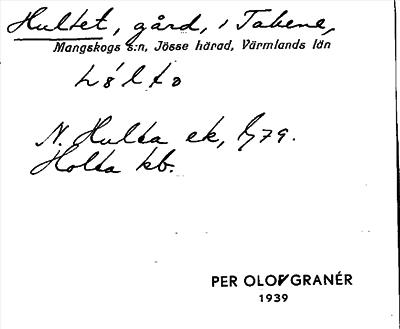 Hultet, gård, i Takene,
Mangskogs s:n, Jösse härad, Värmlands län
N. Hulta ek, G79.
Holta kb.
PER OLOF GRANÉR
1939